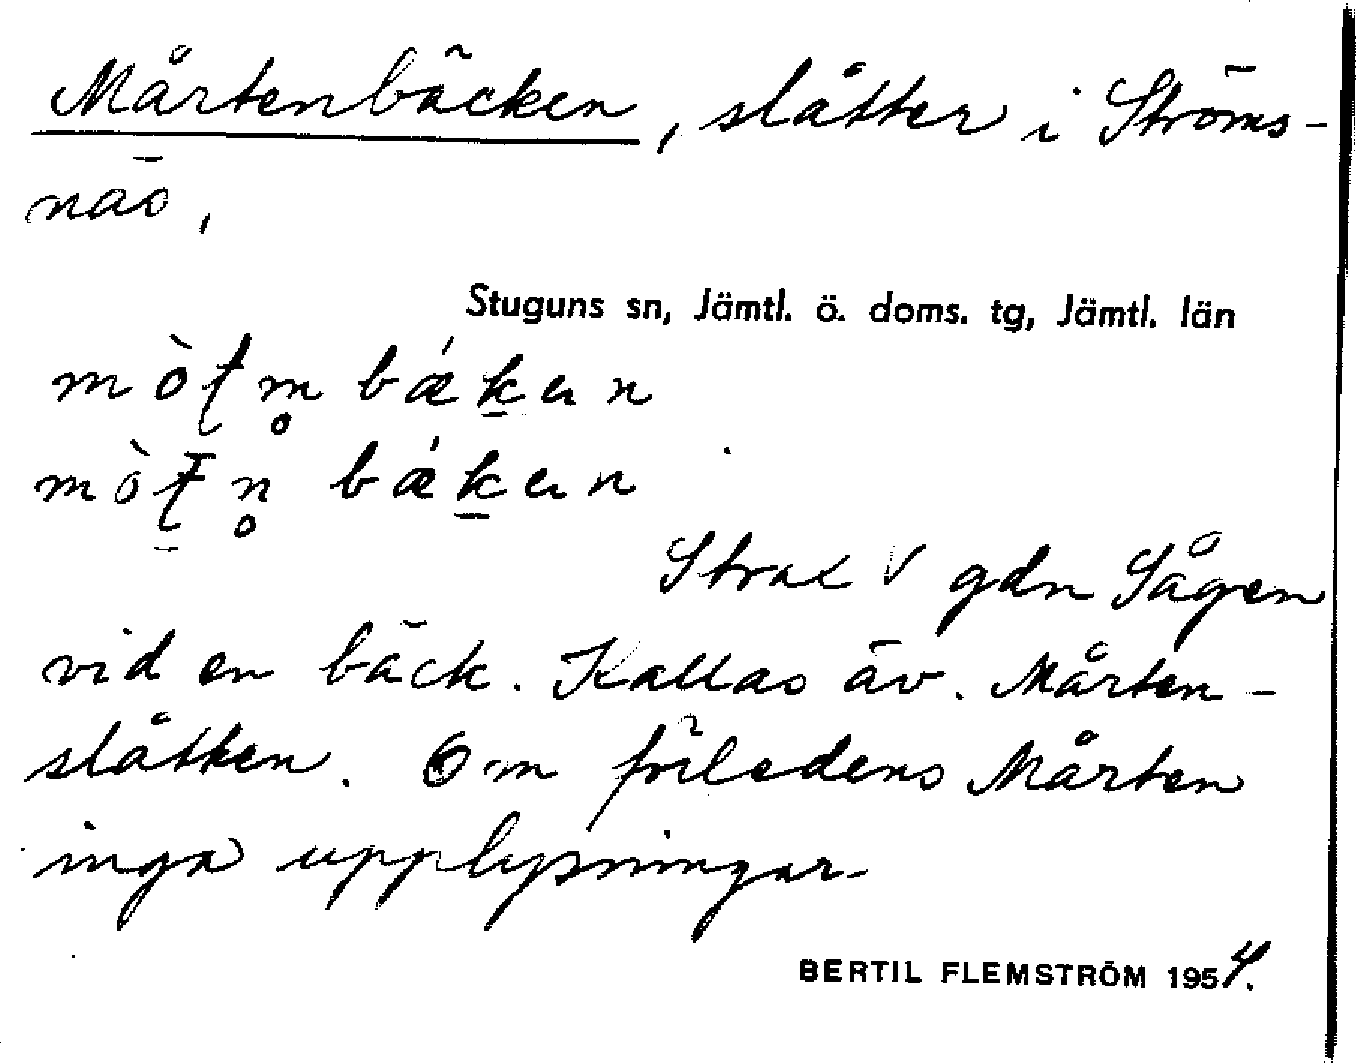 Mårtenbäcken, slåtter i Ströms-
näs,
Stuguns sn, Jämtl. ö. doms. tg, Jämtl. län
Strax V gdn Sågen
vid en bäck. Kallas äv. Mårten-
slåtten. Om förledens Mårten
inga upplysningar.
BERTIL FLEMSTRÖM 1954.